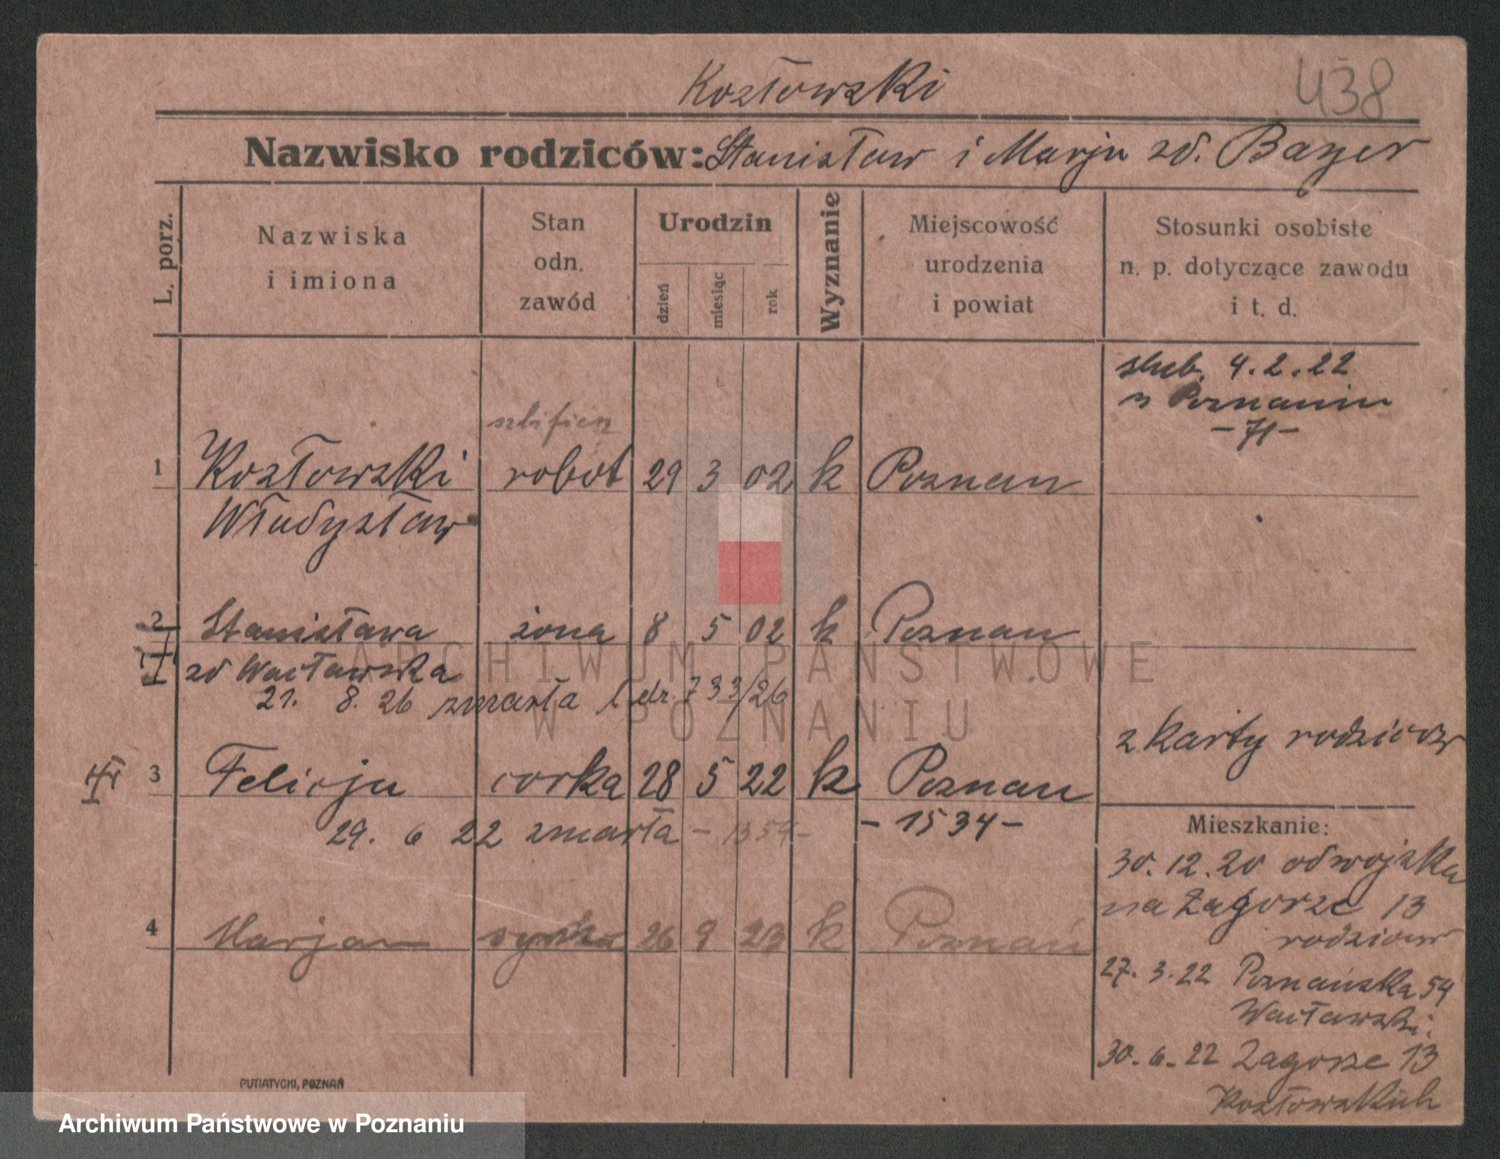 Kozłowski
438
Nazwisko rodziców: Stanisław i Marja zd. Bayer
L. porz.
Nazwiska i imiona
Stan odn. zawód
Urodzin
dzień
miesiąc
rok
Wyznanie
Miejscowość urodzenia i powiat
Stosunki osobiste n. p. dotyczące zawodu i t. d.
ślub. 4.2.22
w Poznaniu
-71-
szlifierz
1 Kozłowski robot 29 3 02 k Poznan
Władysław
2 Stanisława żona 8 5 02 k Poznan
zd Wacławska
21. 8. 26 zmarła 733/26
z karty rodziców
3 Felicja corka 28 5 22 k Poznan
29. 6 22 zmarła - 1359- - 1534-
4 Marjan synka 26 9 23 k Poznań
Mieszkanie:
30.12.20 od wojska
na Zagorze 13
rodziców
27. 3. 22 Poznańska 59
Wacławski.
30. 6. 22 Zagorze 13
Kozłowskich
PUTIATYCKI, POZNAŃ
ARCHIWUM PAŃSTWOWE
W POZNANIU
Archiwum Państwowe w Poznaniu